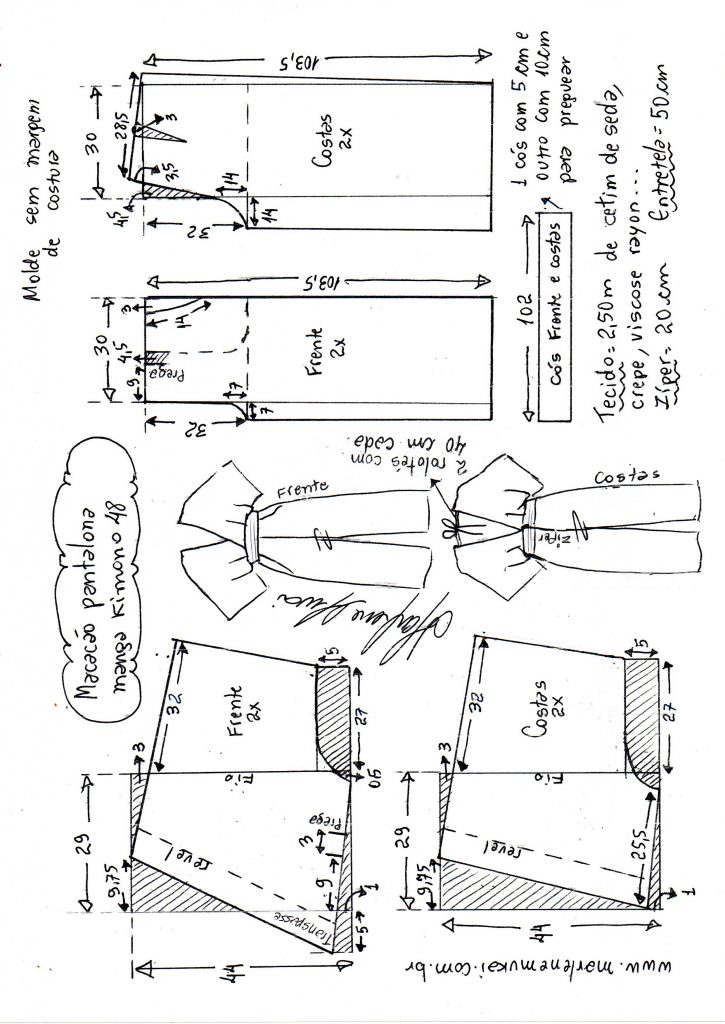 Macacão pantalona
manga Kimono 48
Molde sem margem
de costura
29
9,75
3
32
Frente
2x
Fio
revel
Transpasse
Prega
3
9
5
1
05
27
5
44
29
9,75
3
32
Costas
2x
Fio
revel
25,5
1
27
5
44
www.marlenemukai.com.br
Frente
2 rolotês com
40 cm cada.
Zíper
Costas
Marlene Mukai
30
9
4,5
Prega
3
14
32
7
7
Frente
2x
103,5
30
28,5
3
3,5
4,5
32
14
14
Costas
2x
103,5
102
cós Frente e costas
1 cós com 5 cm e
outro com 10 cm
para preguear
Tecido = 2,50m de cetim de seda,
crepe, viscose rayon...
Zíper = 20 cm
Entretela = 50 cm